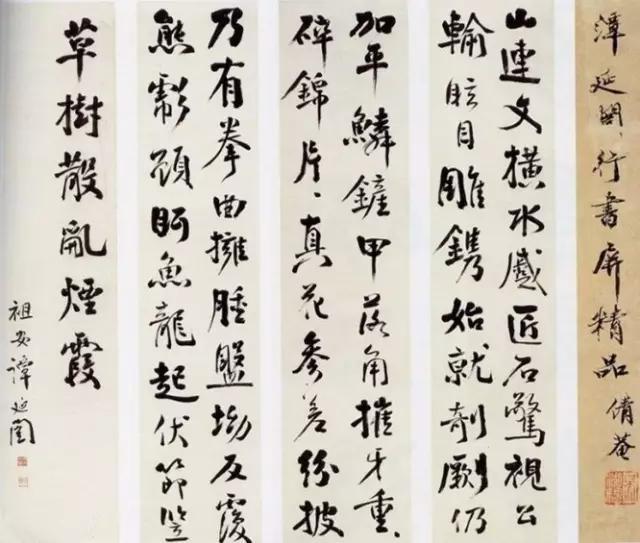 譚延闓、行書屏精品 倩菴
山連文橫水蹙匠石驚視公
輸眩目雕鐫始就剞劂仍
加平鱗鏟甲落角摧牙重、
碎錦片、真花參差紛披
乃有拳曲擁腫盤坳反覆
熊彪顧眄魚龍起伏節豎
草樹散亂煙霞
祖安譚延闓